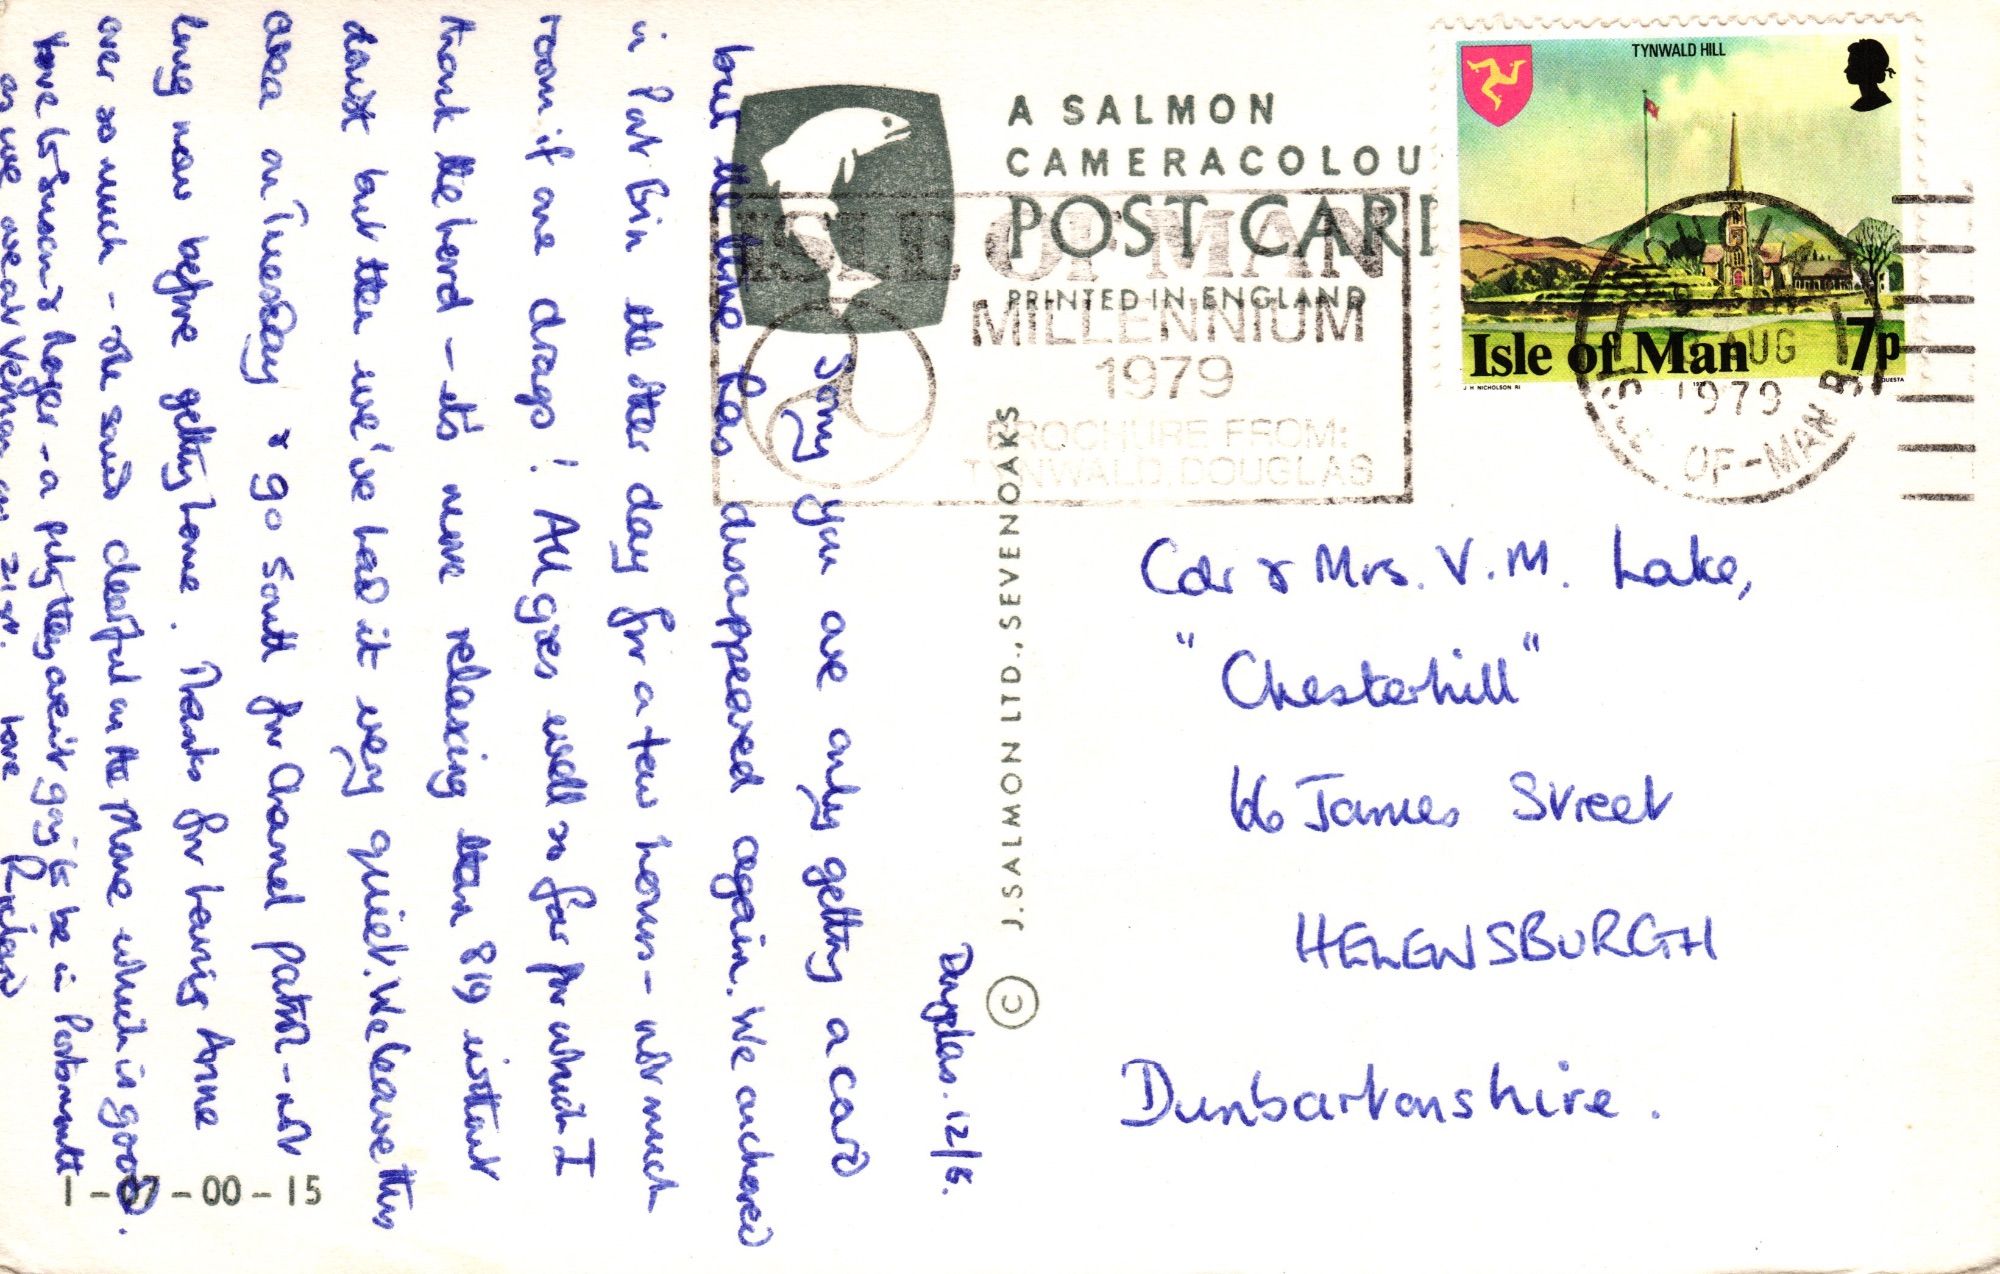 A SALMON
CAMERACOLOU
POST CAR
PRINTED IN ENGLAND
ISLE OF MAN
MILLENNIUM
1979
BROCHURE FROM:
TYNWALD, DOUGLAS
TYNWALD HILL
Isle of Man 7p
J H NICHOLSON RI
QUESTA
AUG
1979
ISLE OF-MAN
© J. SALMON LTD., SEVENOAKS
Douglas. 12/8.
Sorry you are only getting a card
but the time has disappeared again. We anchored
in Port Erin the other day for a few hours - not much
room if one drags! All goes well so far for which I
thank the Lord - it's more relaxing than 819 without
doubt but then we've had it very quiet. We leave this
area on Tuesday & go South for Channel patrol - not
long now before getting home. Thanks for having Anne
ever so much - she sounds cheerful on the phone which is good.
Love to Susan & Roger - a pity they aren't going to be in Portsmouth
as we are at Vernon on 21st. Love
Cdr & Mrs. V. M. Lake,
"Chesterhill"
66 James Street
HELENSBURGH
Dunbartonshire.
1-07-00-15